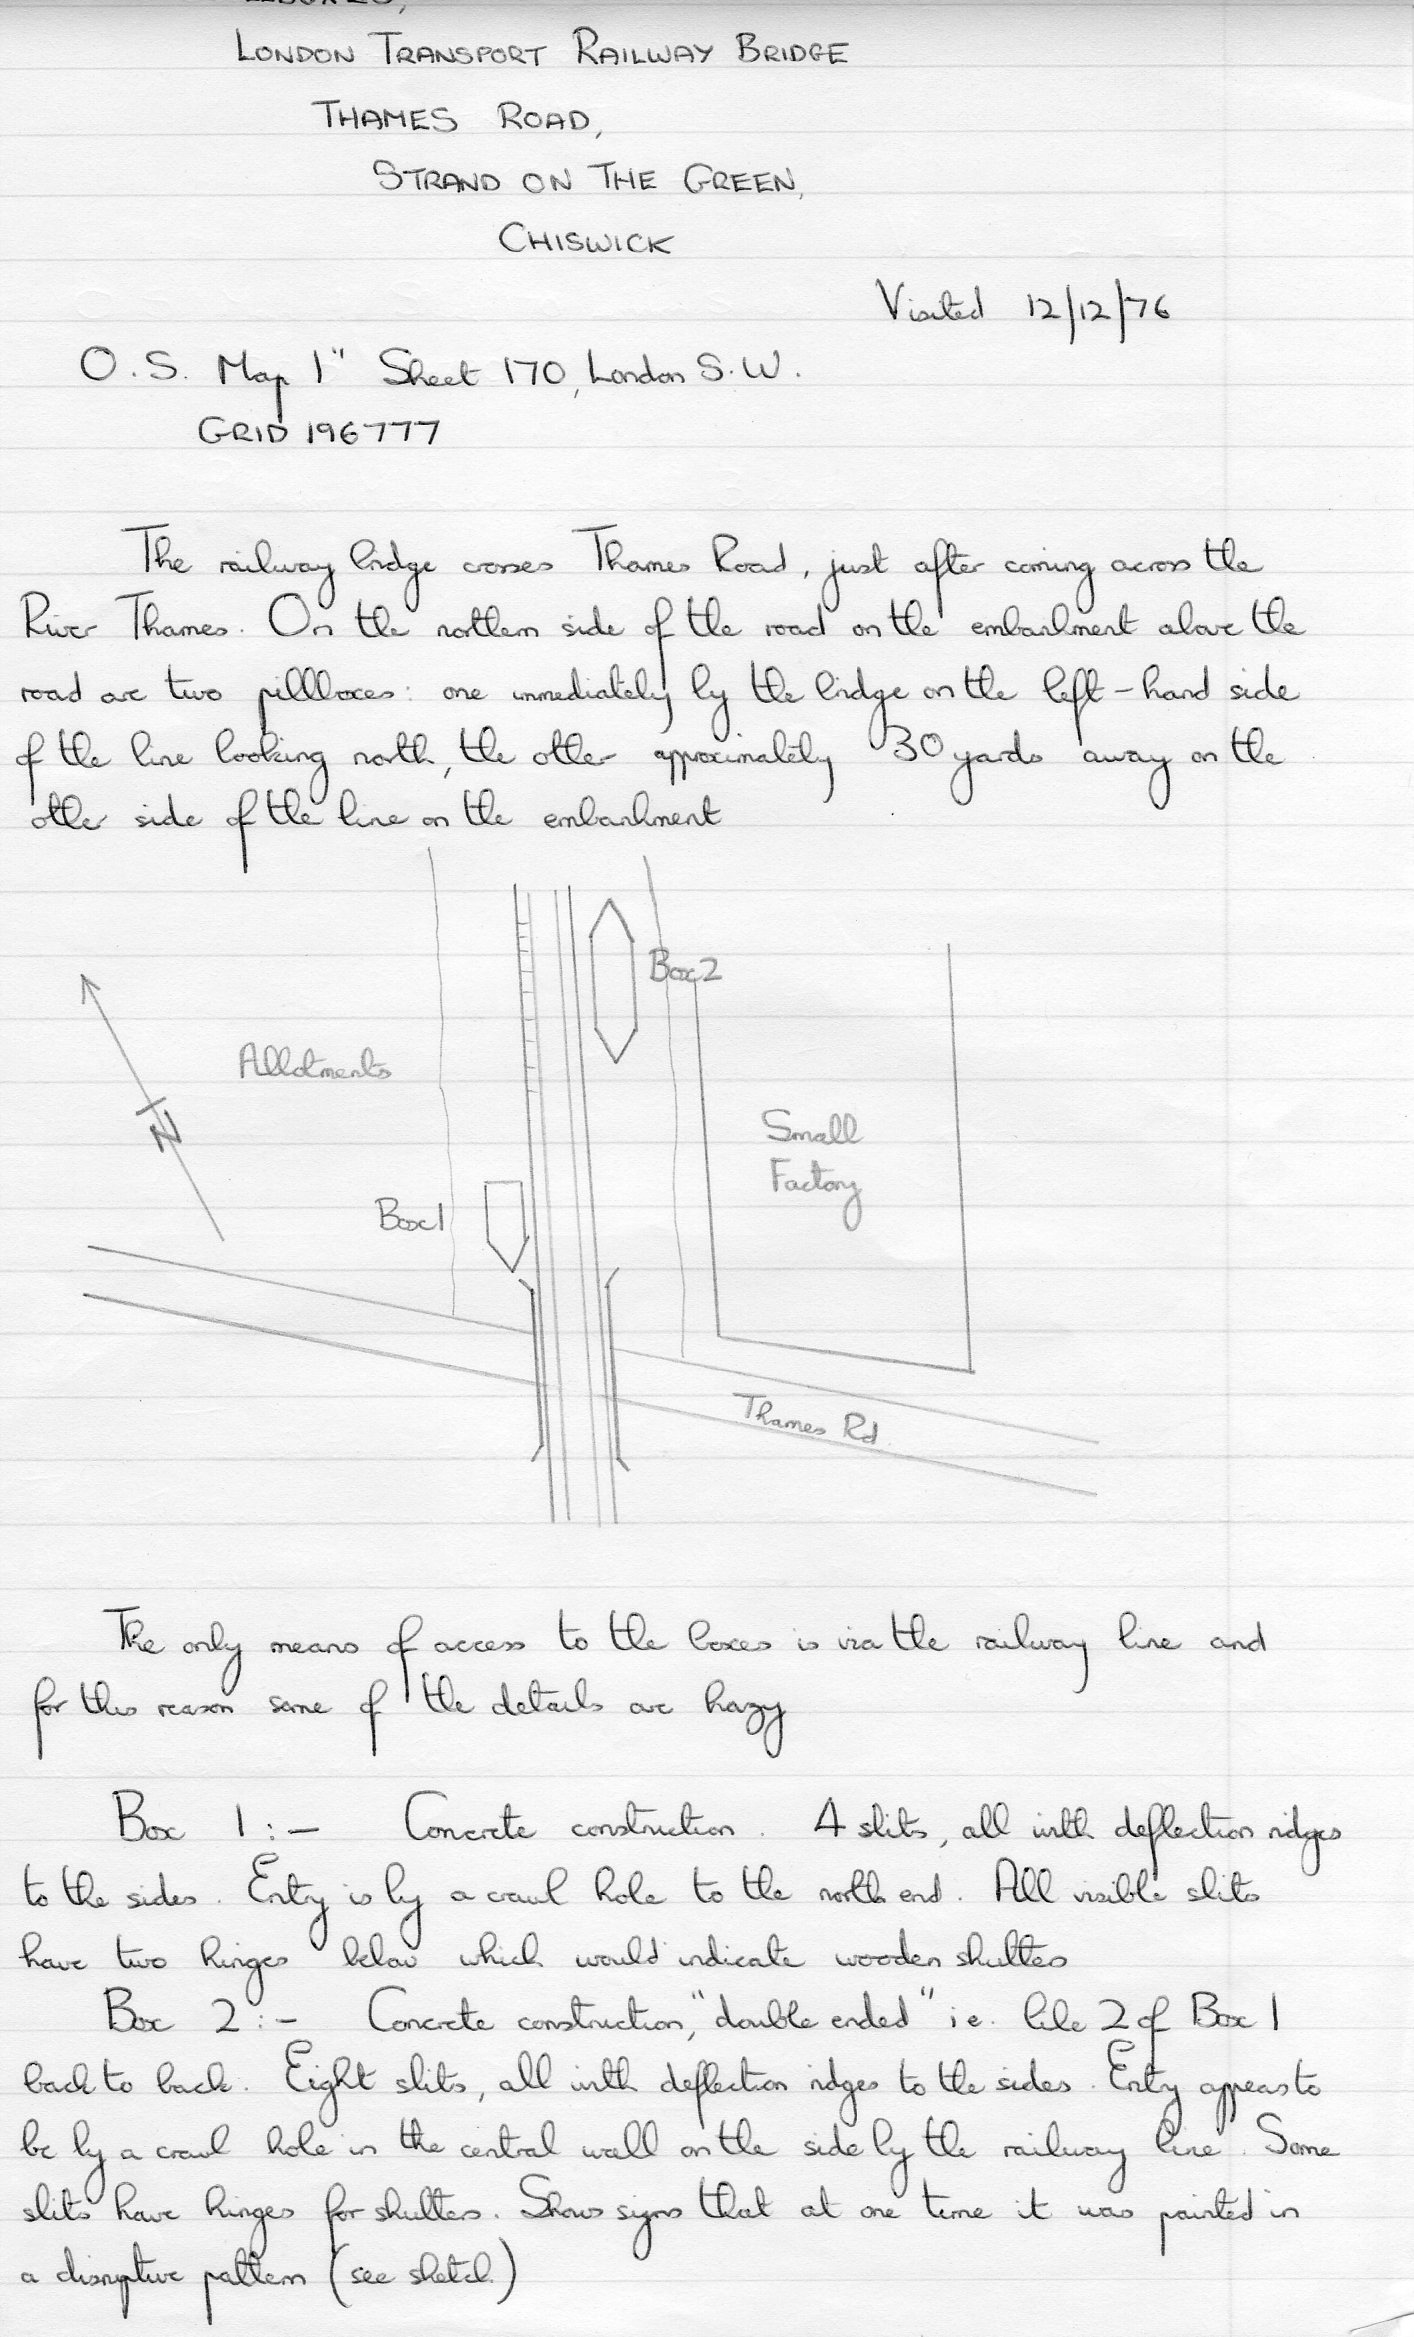 LONDON TRANSPORT RAILWAY BRIDGE
THAMES ROAD,
STRAND ON THE GREEN,
CHISWICK
Visited 12/12/76
O.S. Map 1" Sheet 170, London S.W.
GRID 196777
The railway bridge crosses Thames Road, just after coming across the
River Thames. On the northern side of the road on the embankment above the
road are two pillboxes: one immediately by the bridge on the left-hand side
of the line looking north, the other approximately 30 yards away on the
other side of the line on the embankment
Box 2
Allotments
N
Small
Factory
Box 1
Thames Rd
The only means of access to the boxes is via the railway line and
for this reason some of the details are hazy
Box 1:- Concrete construction. 4 slits, all with deflection ridges
to the sides. Entry is by a crawl hole to the north end. All visible slits
have two hinges below which would indicate wooden shutters
Box 2:- Concrete construction, "double ended" ie. like 2 of Box 1
back to back. Eight slits, all with deflection ridges to the sides. Entry appears to
be by a crawl hole in the central wall on the side by the railway line. Some
slits have hinges for shutters. Shows signs that at one time it was painted in
a disruptive pattern (see sketch)